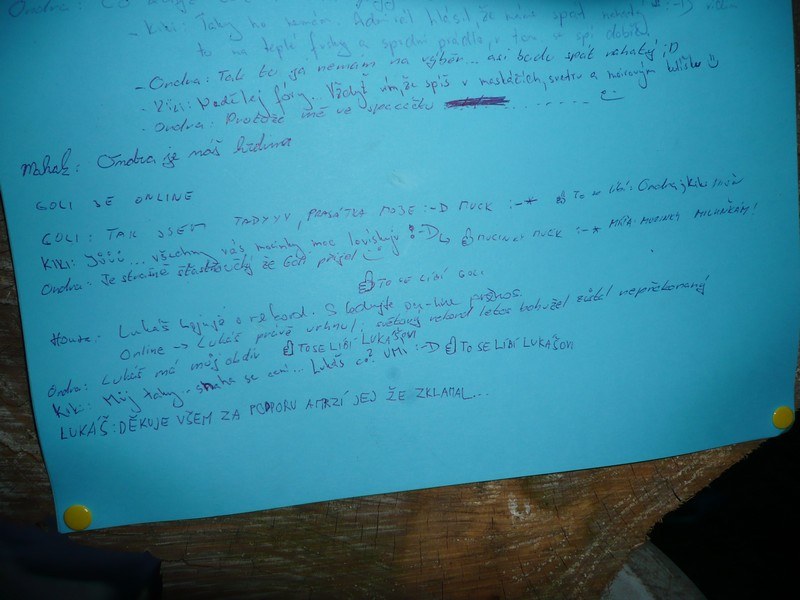 Ondra:
- Kiki: Taky ho nemám. Admirál hlásil, že máme spát nahatý :-D
to na teplé fusky a spodní prádlo, v tom se spí dobře.
- Ondra: Tak to já nemám na výběr... asi budu spát nahatý ;D
- Kiki: Nedělej fóry. Vždyť vím, že spíš v maskáčích, svetru a
- Ondra: Protože mě ve spacáčku
Mahak: Ondra je náš hrdina
GOLI JE ONLINE
GOLI: TAK JSEM TADYYY, PRASÁTKA MOJE :-D MUCK :-* TO SE LÍBÍ: Ondra, Kiki
KIKI: Jůůů... všechny vás mocinky moc lovískuju :-D MUCINKY MUCK :-* MÁŤA: MUCINKY MILUŇKÁM!
Ondra: Je strašně šťastňoučký že Goli přijel
TO SE LÍBÍ GOLI
House: Lukáš bojuje o rekord. Sledujte on-line přenos.
Online → Lukáš právě vrhnul, světový rekord letos bohužel zůstal nepřekonaný
Ondra: Lukáš má můj obdiv TO SE LÍBÍ LUKÁŠOVI
Kiki: Můj taky.. snaha se cení... Lukáš co? UMI :-D TO SE LÍBÍ LUKÁŠOVI
LUKÁŠ: DĚKUJE VŠEM ZA PODPORU A MRZÍ JEJ ŽE ZKLAMAL...